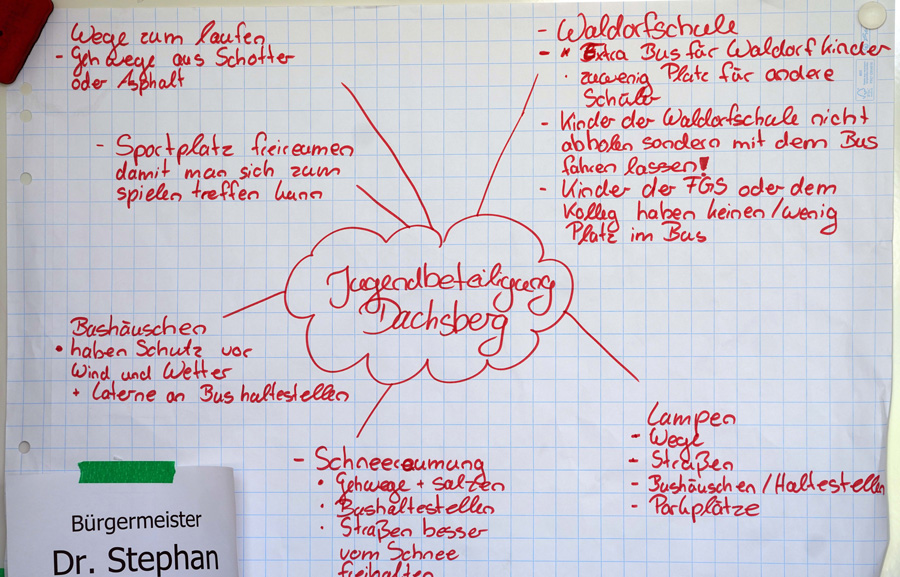 Wege zum laufen
- Gehwege aus Schotter
oder Asphalt
- Sportplatz freiraeumen
damit man sich zum
spielen treffen kann
- Waldorfschule
- * Extra Bus für Waldorfkinder
· zuwenig Platz für andere
Schüler
- Kinder der Waldorfschule nicht
abholen sondern mit dem Bus
fahren lassen!
- Kinder der FGS oder dem
Kolleg haben keinen/wenig
Platz im Bus
Jugendbeteiligung
Dachsberg
Bushäuschen
• haben Schutz vor
Wind und Wetter
+ Laterne an Bushaltestellen
- Schneeraeumung
• Gehwege + salzen
• Bushaltestellen
• Straßen besser
vom Schnee
freihalten
Lampen
- Wege
- Straßen
- Bushäuschen/Haltestellen
- Parkplätze
Bürgermeister
Dr. Stephan